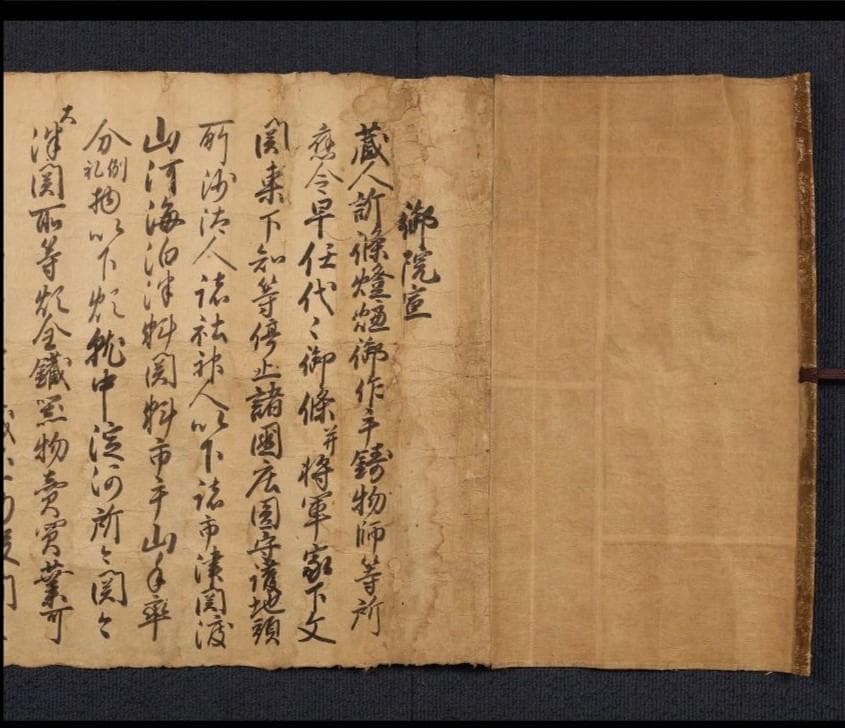 御院宣
蔵人所燈爐御作手鋳物師等所
應令早任代々御條并将軍家下文
関東下知等停止諸国庄園守護地頭
所沙汰人諸社神人以下諸市津関渡
山河海泊津料関料市手山手率
分例物以下煩就中淀河所々関々
大津関所等煩全鐵器物賣買業可